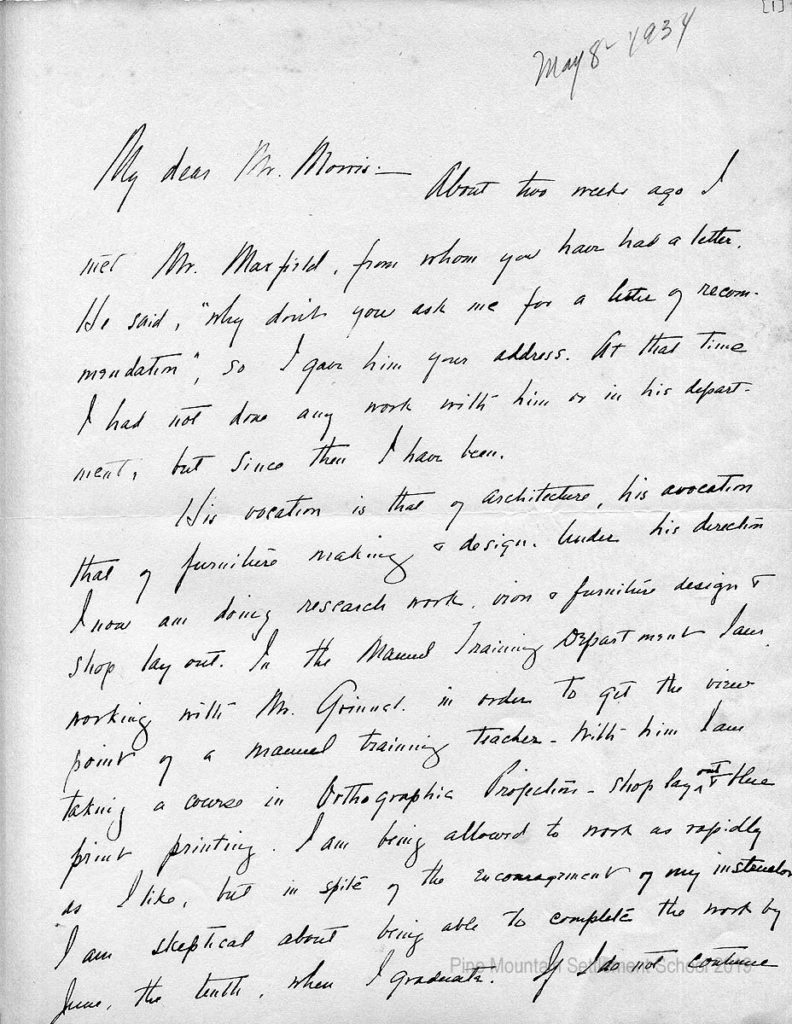 [1]
May 8- 1934
My dear Mr. Morris:— About two weeks ago I
met Mr. Maxfield, from whom you have had a letter.
He said, "why don't you ask me for a letter of recom-
mendation", so I gave him your address. At that time
I had not done any work with him or in his depart-
ment, but since then I have been.
His vocation is that of architecture, his avocation
that of furniture making & design. Under his direction
I now am doing research work, iron & furniture design &
shop lay out. In the Manual Training Department I am
working with Mr. Grinnel. in order to get the view
point of a manual training teacher - With him I am
taking a course in Orthographic Projection - shop lay out & blue
print printing. I am being allowed to work as rapidly
as I like, but in spite of the encouragement of my instructor
I am skeptical about being able to complete the work by
June, the tenth, when I graduate. If I do not continue
Pine Mountain Settlement School 2019